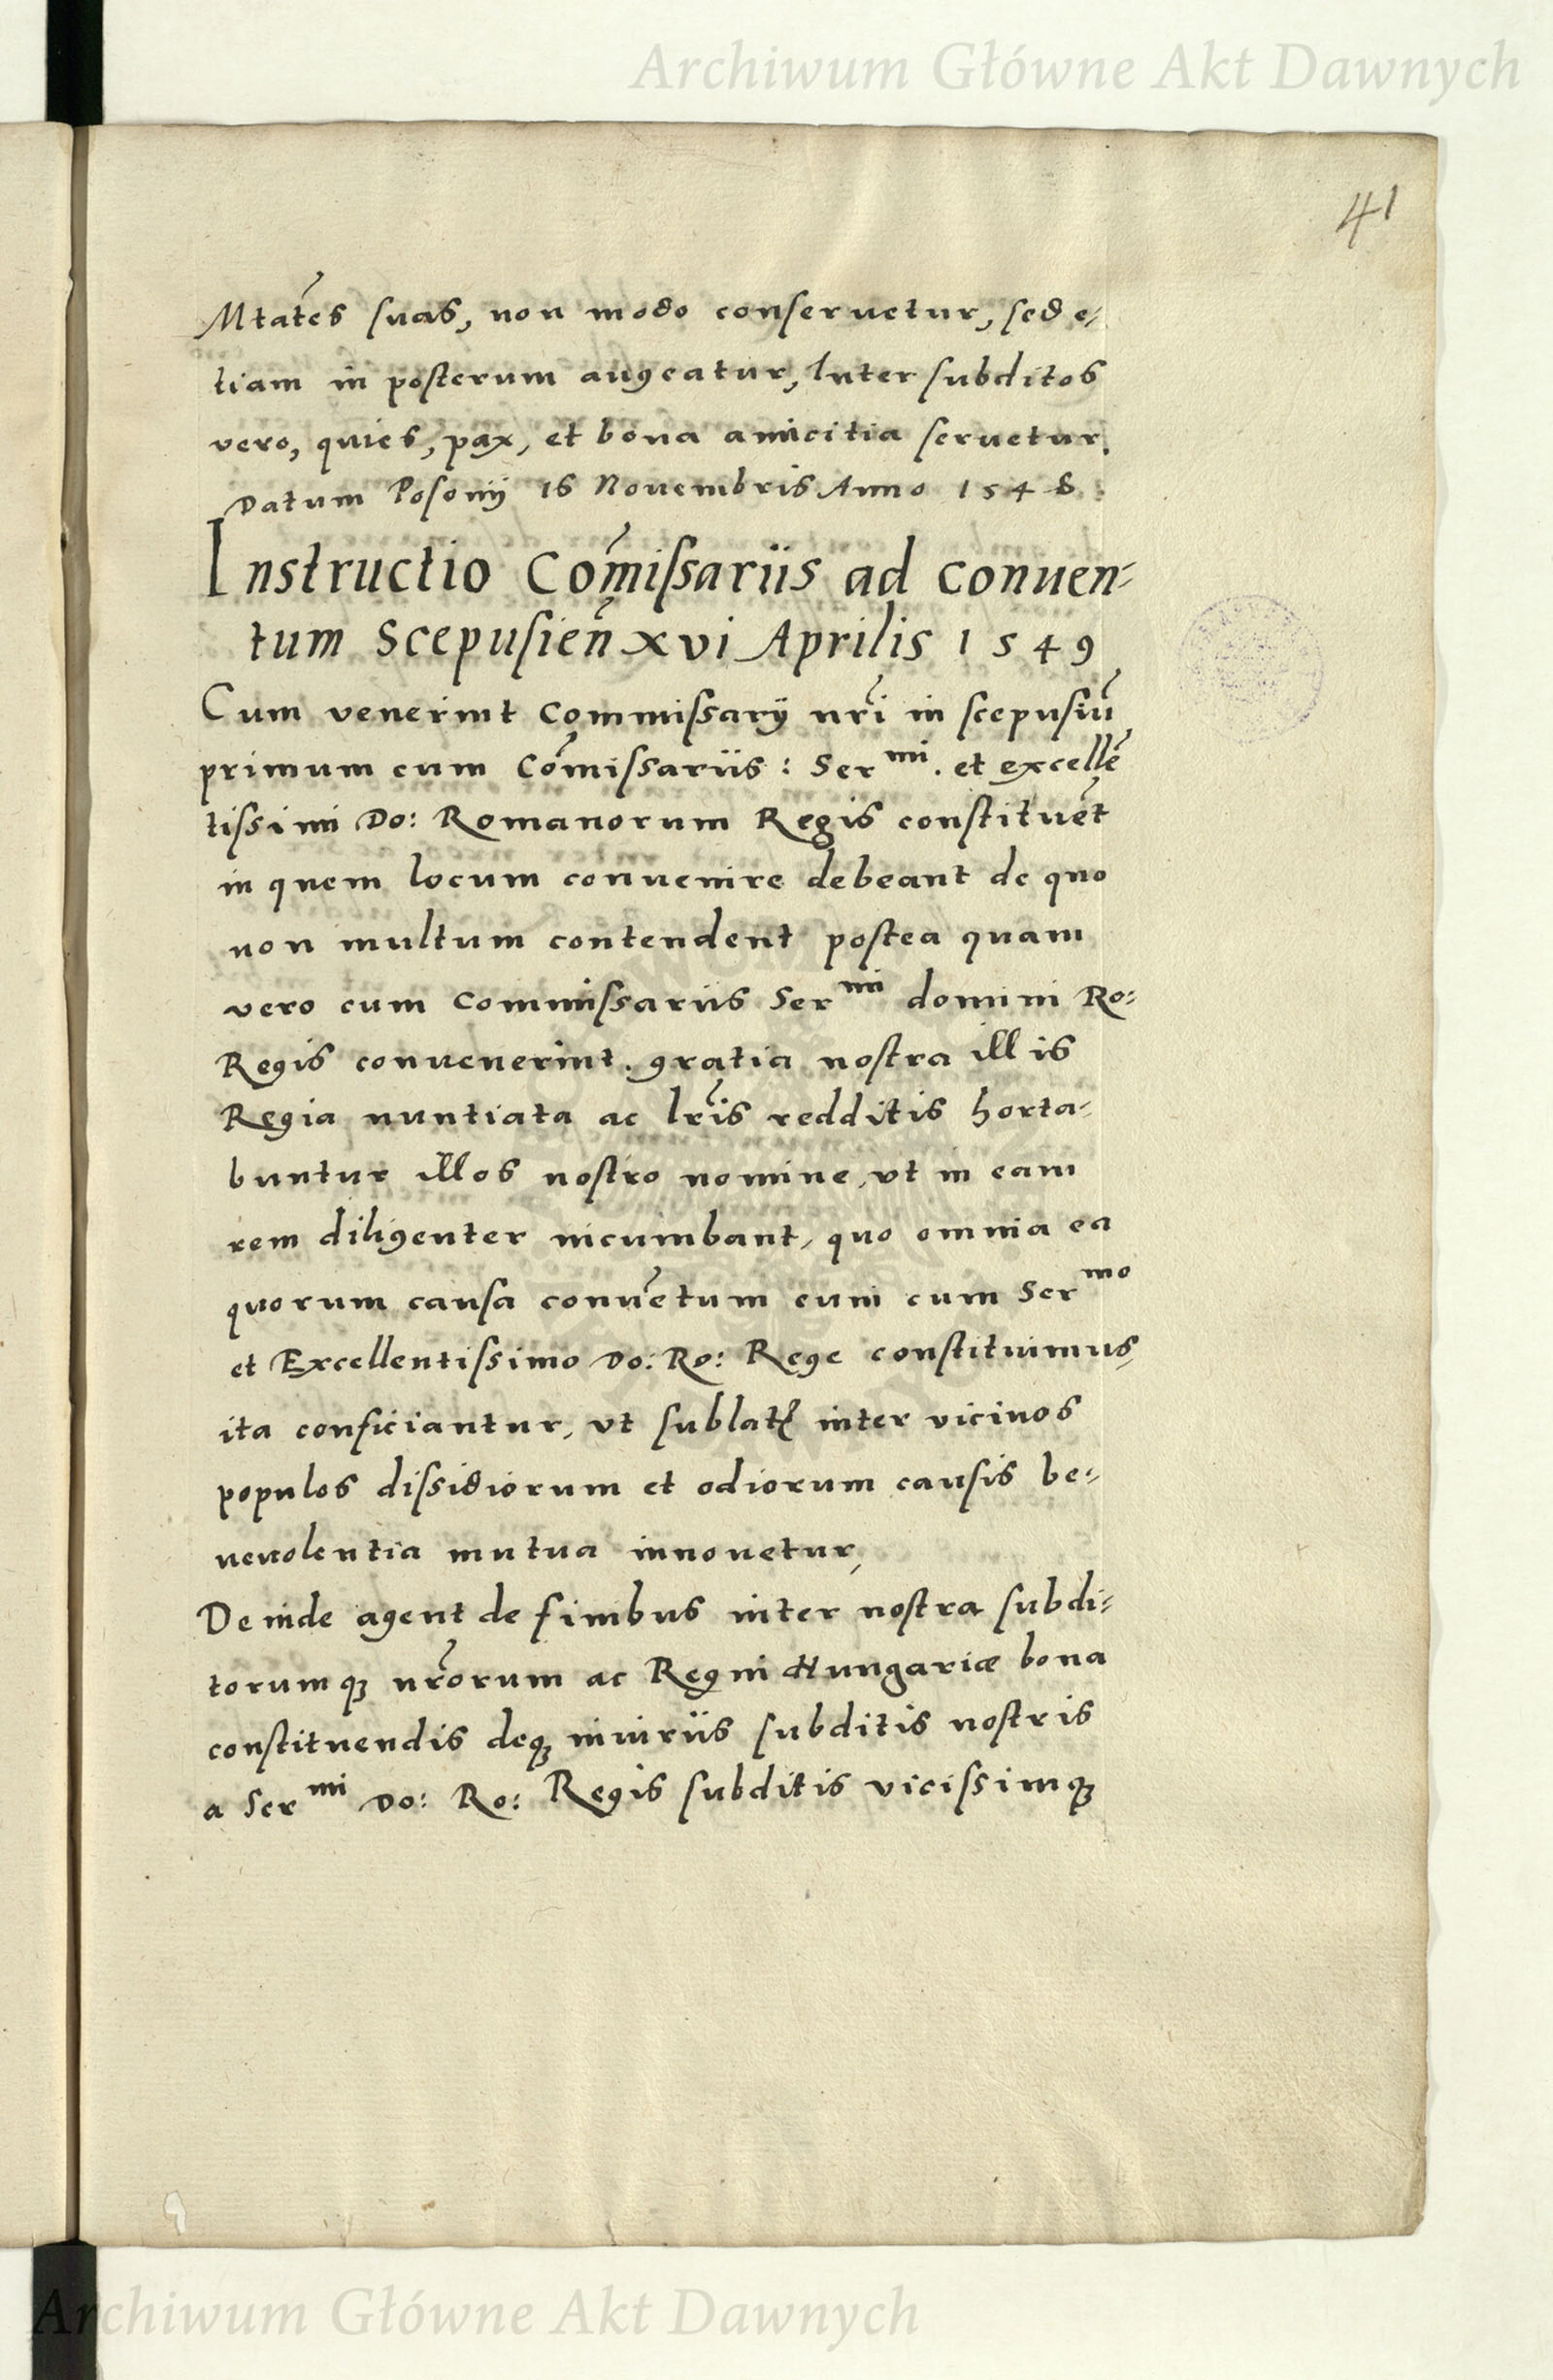 Archiwum Główne Akt Dawnych
41
Mtates suas, non modo conseruetur, sed e-
tiam in posterum augeatur, Inter subditos
vero, quies, pax, et bona amicitia seruetur.
Datum Posonij 16 Nouembris Anno 1548.
Instructio Com̃issariis ad conuen-
tum Scepusień xvi Aprilis 1549
Cum venerint Commissarij nr̃i in scepusiũ
primum cum Com̃issariis: Ser mi. et excellẽ
tissimi Do: Romanorum Regis constituẽt
in quem locum conuenire debeant de quo
non multum contendent postea quam
vero cum Commissariis Ser mi domini Ro:
Regis conuenerint. gratia nostra illis
Regia nuntiata ac lr̃is redditis horta-
buntur illos nostro nomine, vt in eam
rem diligenter incumbant, quo omnia ea
quorum causa conuẽtum eum cum Ser mo
et Excellentissimo Do: Ro: Rege constituimus,
ita conficiantur, vt sublatꝭ inter vicinos
populos dissidiorum et odiorum causis be-
neuolentia mutua innouetur,
Deinde agent de finibus inter nostra subdi-
torumqꝫ nr̃orum ac Regni Hungariæ bona
constituendis deqꝫ iniuriis subditis nostris
a Ser mi Do: Ro: Regis subditis vicissimqꝫ
Archiwum Główne Akt Dawnych